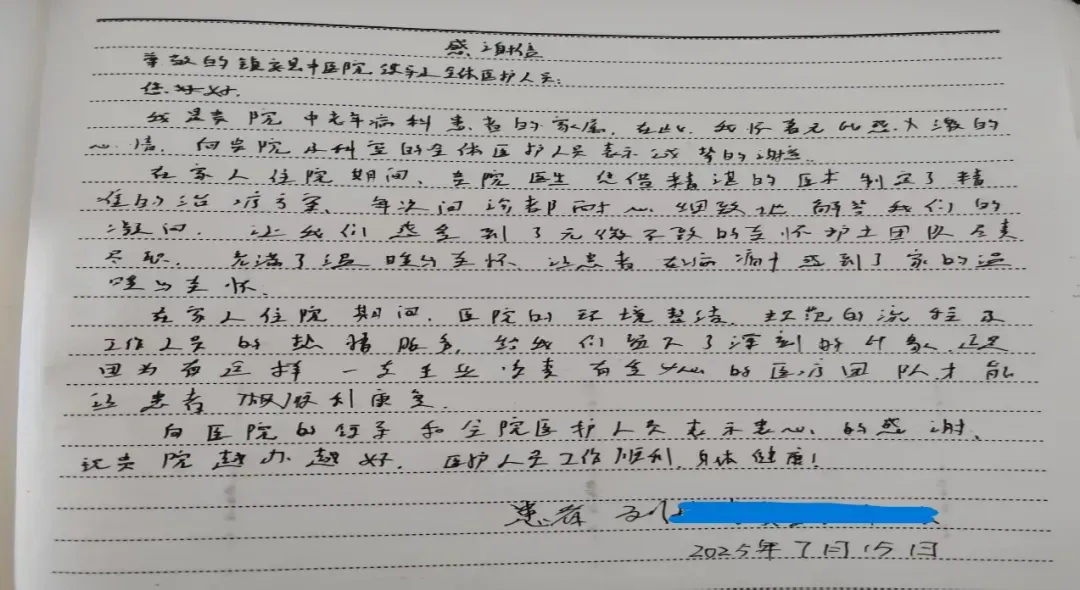 感谢信
尊敬的镇安县中医院领导及全体医护人员:
您好!
我是贵院中老年病科患者的家属,在此,我怀着无比感激的
心情,向贵院及科室的全体医护人员表示诚挚的谢意。
在家人住院期间,贵院医生凭借精湛的医术制定了精
准的治疗方案,每次问诊都耐心细致地解答我们的
疑问,让我们感受到了无微不致的关怀护士团队尽责
尽职,充满了温暖与关怀,让患者在病痛中感到了家的温
暖与关怀。
在家人住院期间,医院的环境整洁,规范的流程及
工作人员的热情服务,给我们留下了深刻的印象,正是
因为有这样一支专业负责有爱心的医疗团队,才能
让患者顺利康复
向医院的领导和全院医护人员表示衷心的感谢,
祝贵院越办越好,医护人员工作顺利,身体健康!
患者
2025年7月15日